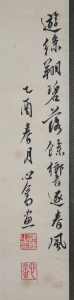 游絲翔碧落餘響遂春風
乙酉春月心畬畫